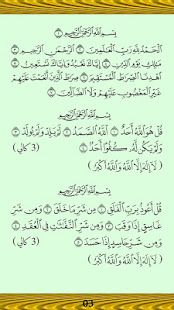 بِسْمِ اللَّهِ الرَّحْمَٰنِ الرَّحِيمِ ①
الْحَمْدُ لِلَّهِ رَبِّ الْعَالَمِينَ ② الرَّحْمَٰنِ الرَّحِيمِ ③
مَالِكِ يَوْمِ الدِّينِ ④ إِيَّاكَ نَعْبُدُ وَإِيَّاكَ نَسْتَعِينُ ⑤
اهْدِنَا الصِّرَاطَ الْمُسْتَقِيمَ ⑥ صِرَاطَ الَّذِينَ أَنْعَمْتَ عَلَيْهِمْ
غَيْرِ الْمَغْضُوبِ عَلَيْهِمْ وَلَا الضَّالِّينَ ⑦
بِسْمِ اللَّهِ الرَّحْمَٰنِ الرَّحِيمِ
قُلْ هُوَ اللَّهُ أَحَدٌ ① اللَّهُ الصَّمَدُ ② لَمْ يَلِدْ وَلَمْ يُولَدْ ③
وَلَمْ يَكُنْ لَهُ كُفُوًا أَحَدٌ ④ (3 كالي)
لَا إِلَهَ إِلَّا اللَّهُ وَاللَّهُ أَكْبَرُ )
بِسْمِ اللَّهِ الرَّحْمَٰنِ الرَّحِيمِ
قُلْ أَعُوذُ بِرَبِّ الْفَلَقِ ① مِنْ شَرِّ مَا خَلَقَ ② وَمِنْ شَرِّ
غَاسِقٍ إِذَا وَقَبَ ③ وَمِنْ شَرِّ النَّفَّاثَاتِ فِي الْعُقَدِ ④
وَمِنْ شَرِّ حَاسِدٍ إِذَا حَسَدَ ⑤ (3 كالي)
( لَا إِلَهَ إِلَّا اللَّهُ وَاللَّهُ أَكْبَرُ )
03